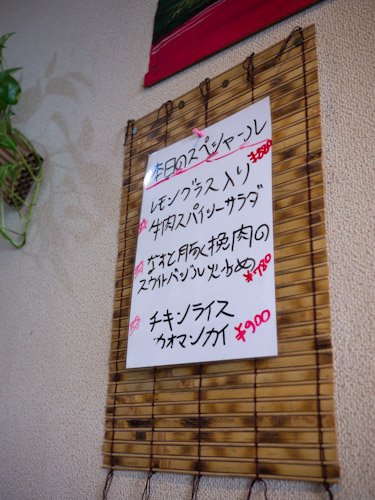 本日のスペシャル
レモングラス入り
牛肉スパイシーサラダ
¥880
なすと豚挽肉の
スウィトバジル炒め
¥780
チキンライス
カオマンガイ ¥900